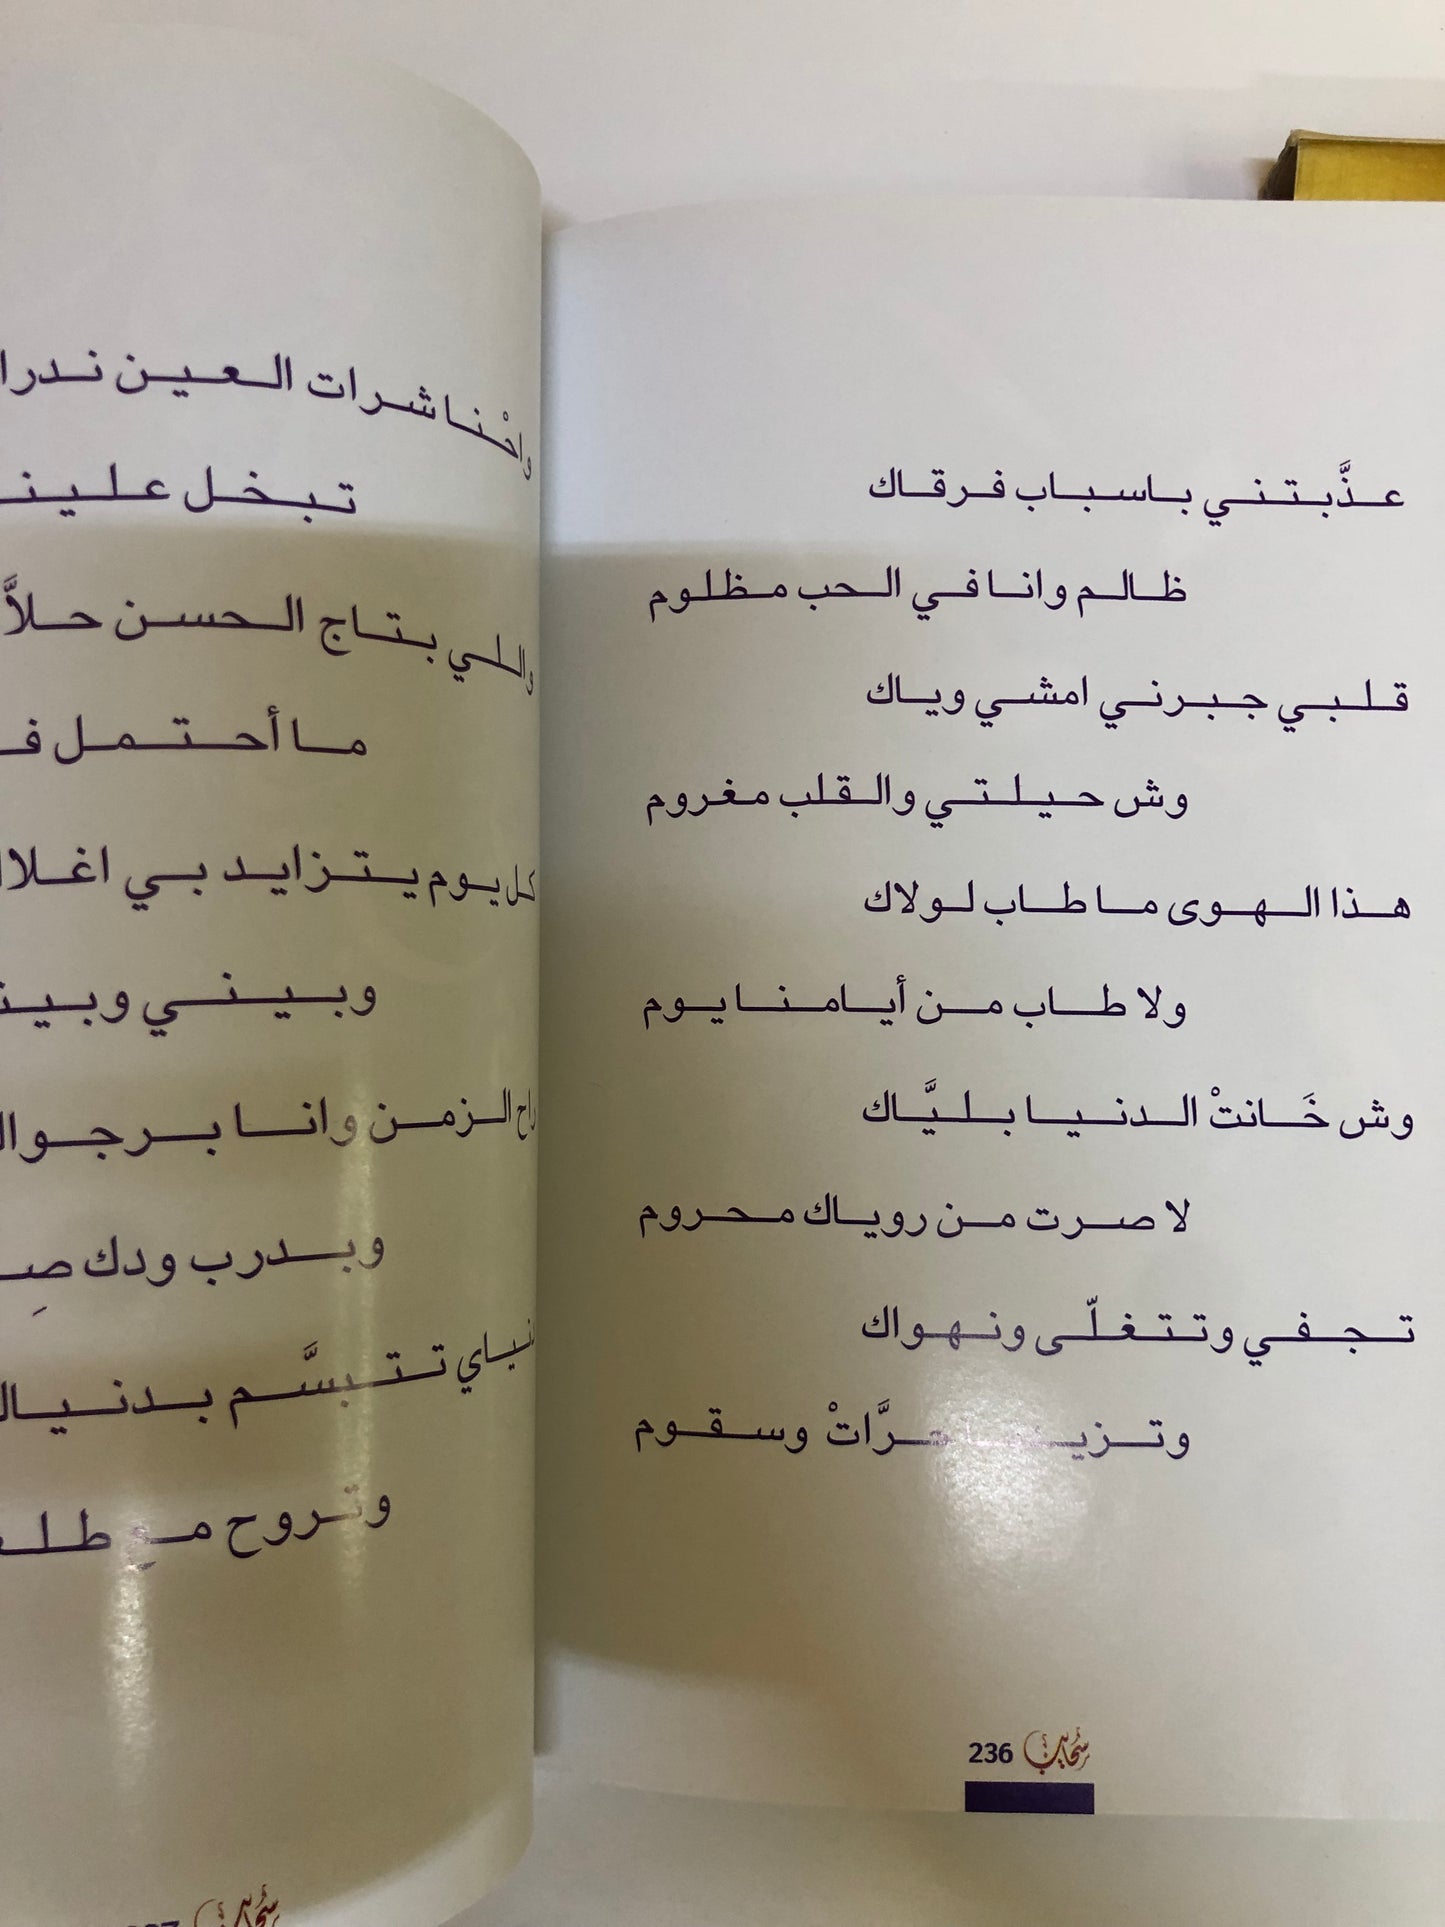 عذَّبتني باسباب فرقاك
ظالم وانا في الحب مظلوم
قلبي جبرني امشي وياك
وش حيلتي والقلب مغروم
هذا الهوى ما طاب لولاك
ولا طاب من أيامنا يوم
وش خَانتْ الدنيا بليَّاك
لا صرت من روياك محروم
تجفي وتتغلّى ونهواك
وتزيد حرَّاتْ وسقوم
236 سحايب
واحْنا شرات العين ندرا
تبخل علينـ
واللي بتاج الحسن حلاَّ
ما أحتمل فـ
كل يوم يتزايد بي اغلا
وبيني وبيـ
راح الزمن وانا برجوا
وبدرب ودك صِـ
دنياي تتبسَّم بدنيا
وتروح مع طلـ
سحايب